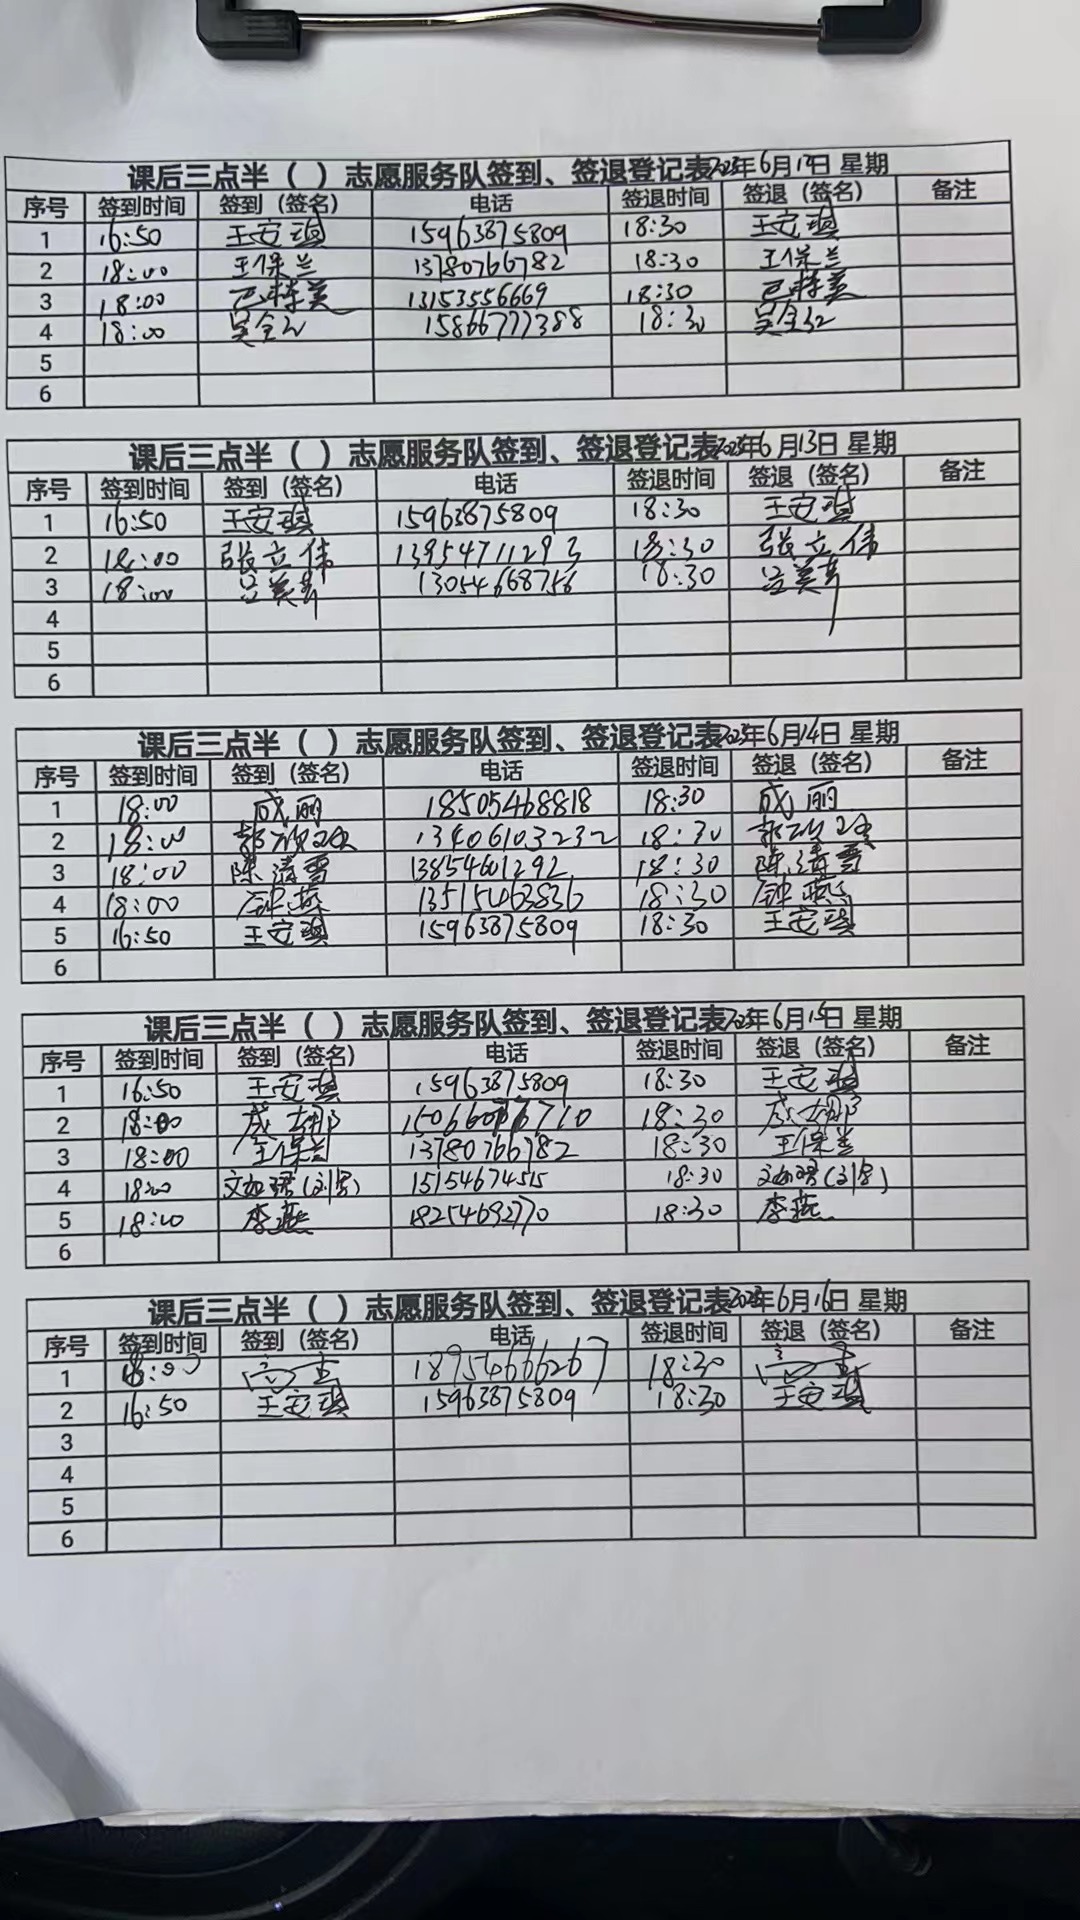 课后三点半（ ）志愿服务队签到、签退登记表2023年6月12日 星期
序号 签到时间 签到（签名） 电话 签退时间 签退（签名） 备注
1 16:50 王安琪 15963875809 18:30 王安琪
2 18:00 王保兰 13780766782 18:30 王保兰
3 18:00 13153556669 18:30
4 18:00 15866777388 18:30
5
6
课后三点半（ ）志愿服务队签到、签退登记表2023年6月13日 星期
序号 签到时间 签到（签名） 电话 签退时间 签退（签名） 备注
1 16:50 王安琪 15963875809 18:30 王安琪
2 18:00 张立伟 13954711293 18:30 张立伟
3 18:00 13054668756 18:30
4
5
6
课后三点半（ ）志愿服务队签到、签退登记表2023年6月14日 星期
序号 签到时间 签到（签名） 电话 签退时间 签退（签名） 备注
1 18:00 成丽 18505468818 18:30 成丽
2 18:00 13406103232 18:30
3 18:00 陈清雪 13854601292 18:30 陈清雪
4 18:00 钟燕 13515463836 18:30 钟燕
5 16:50 王安琪 15963875809 18:30 王安琪
6
课后三点半（ ）志愿服务队签到、签退登记表2023年6月15日 星期
序号 签到时间 签到（签名） 电话 签退时间 签退（签名） 备注
1 16:50 王安琪 15963875809 18:30 王安琪
2 18:00 18:30
3 18:00 王保兰 13780766782 18:30 王保兰
4 18:00 15154674515 18:30
5 18:00 李燕 18254692770 18:30 李燕
6
课后三点半（ ）志愿服务队签到、签退登记表2023年6月16日 星期
序号 签到时间 签到（签名） 电话 签退时间 签退（签名） 备注
1 18:00 18954666267 18:30
2 16:50 王安琪 15963875809 18:30 王安琪
3
4
5
6